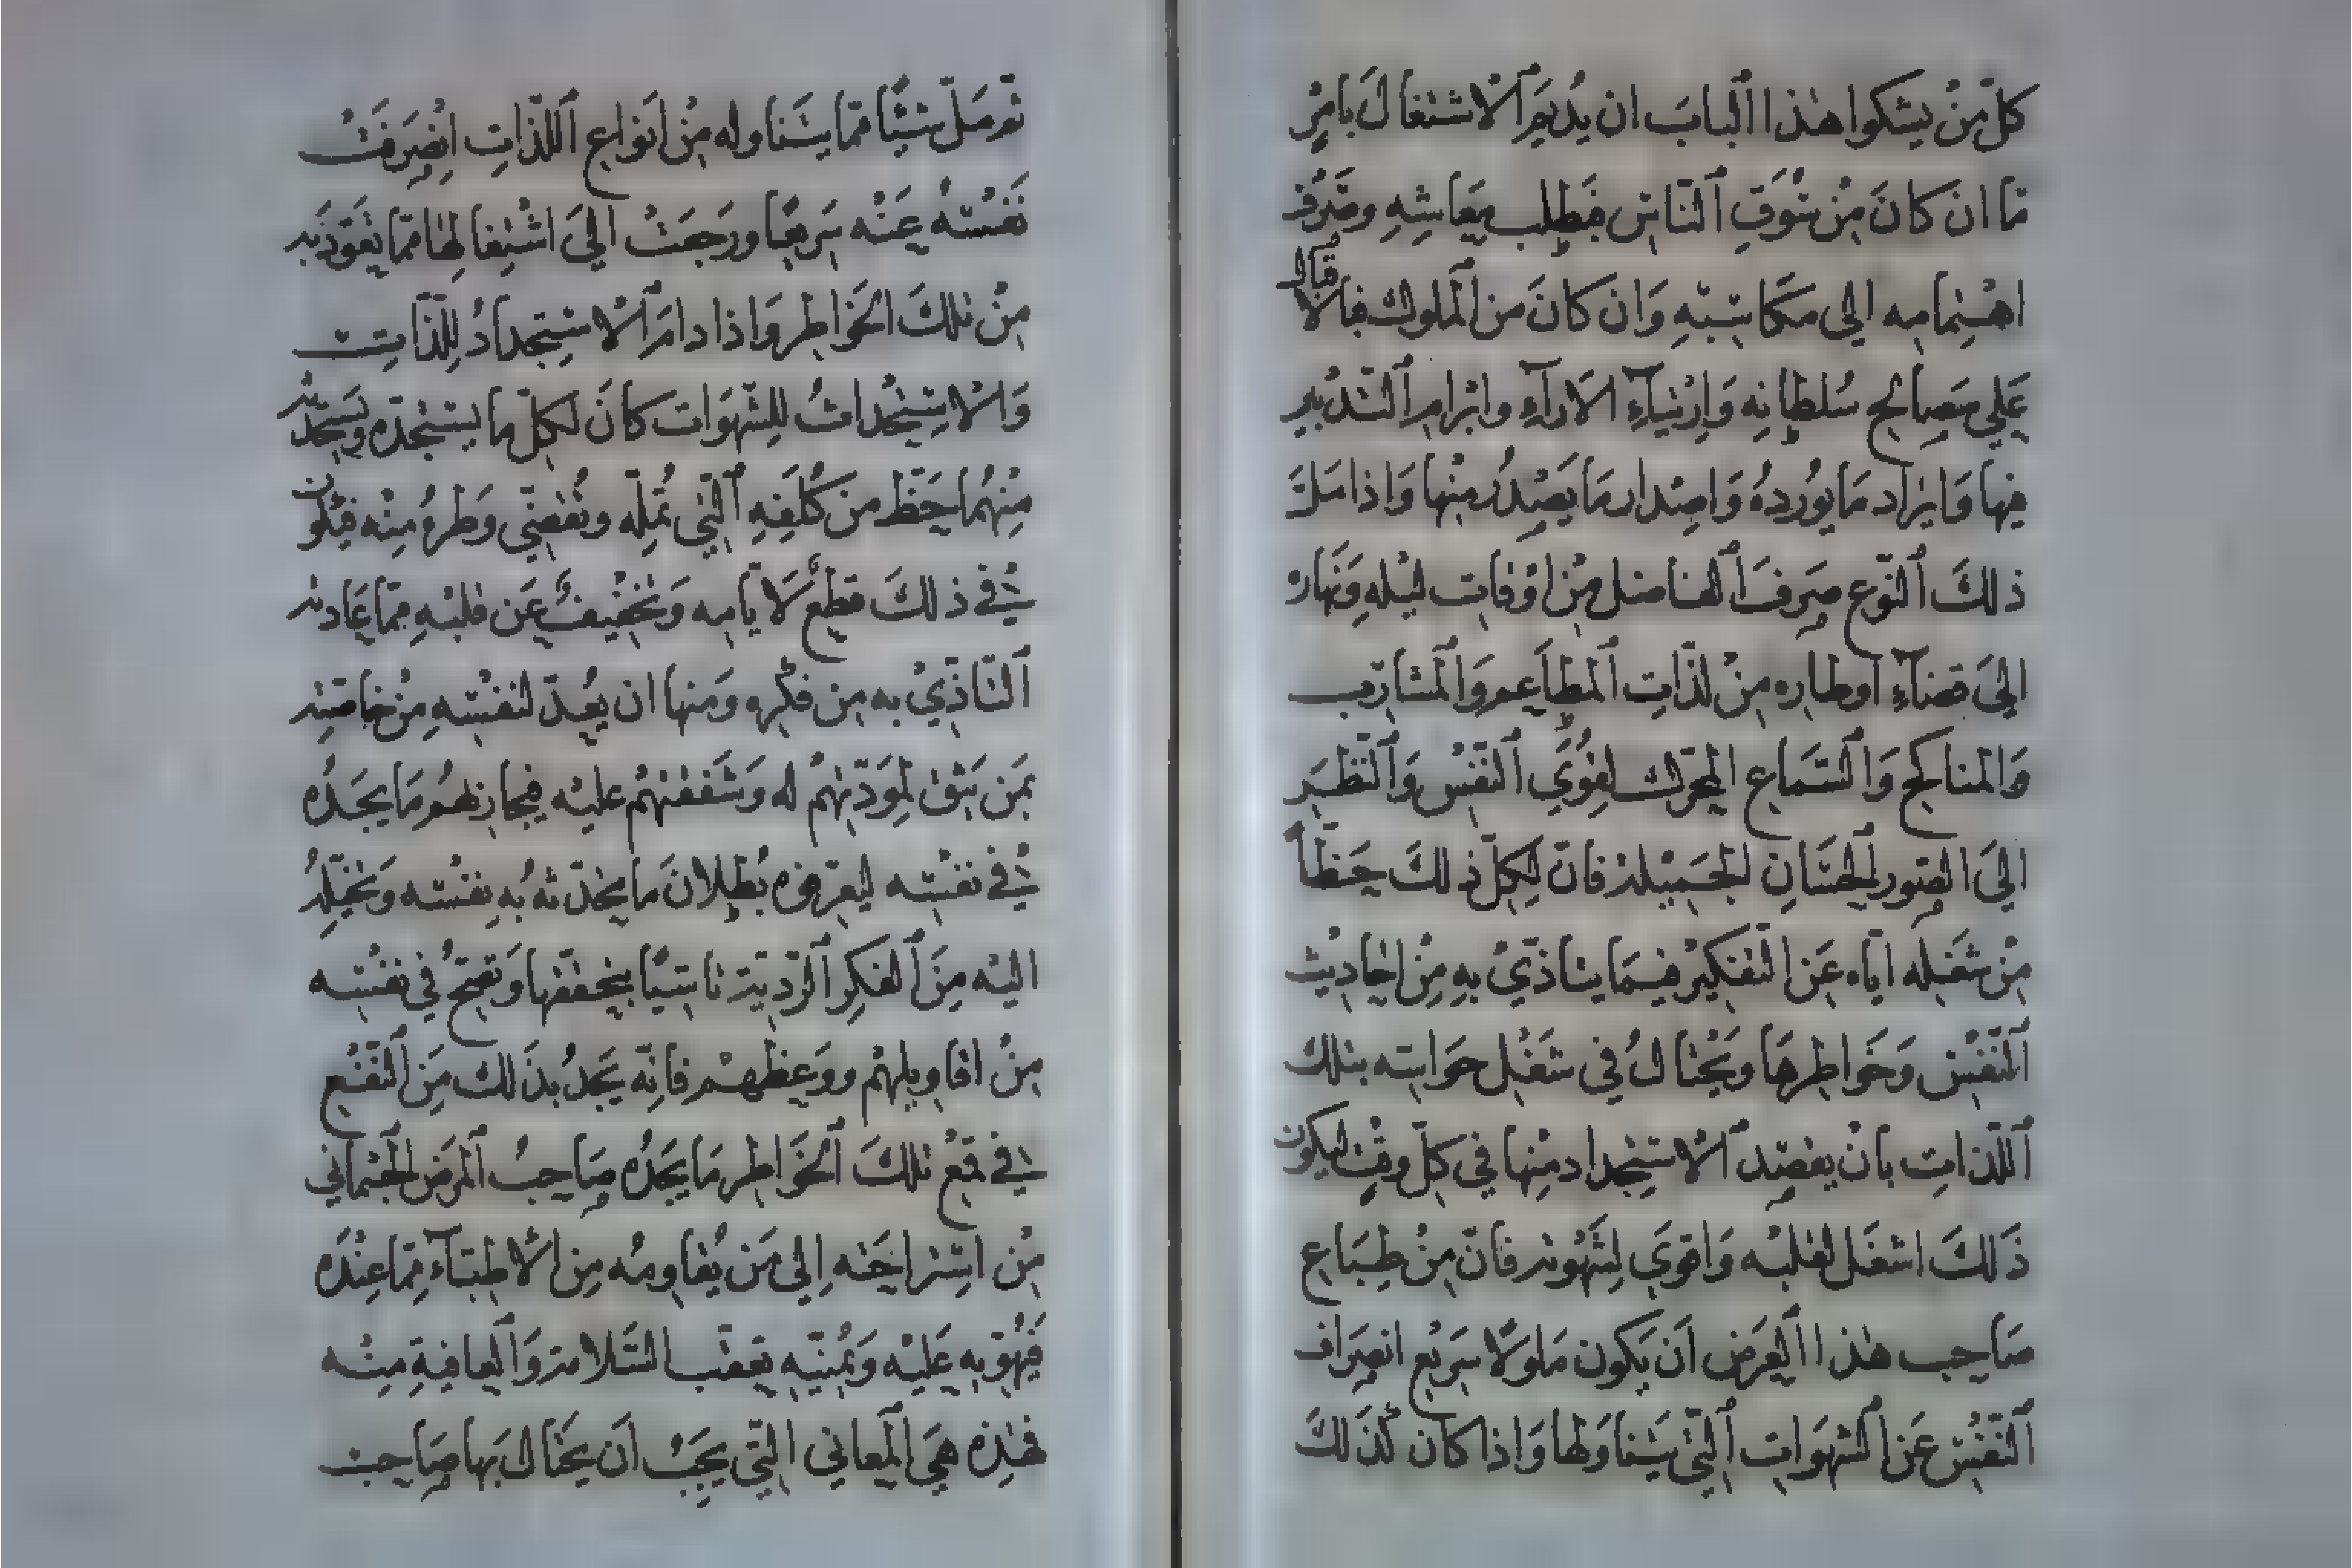 كلّ مَنْ يشكوا هذا ٱلبابَ ان يُديمَ ٱلاشتغالَ بامْرٍ
مّا ان كانَ مِنْ سُوَقِ ٱلنّاسِ فبطلب مَعَاشِهِ وصَرْف
اهتِمامِه الى مكاسِبِهِ وَان كانَ من ٱلملوك فبالاقبال
عَلى مصَالحِ سُلطانِه وَارْتيآءِ الارآءِ وابْرام ٱلتّدْبير
فيها وَايْراد مَا يُورِدهُ وَاصْدار مَا يَصْدرُ منْها وَاذا مَلَّ
ذلكَ ٱلنّوع صرفَ ٱلفاضل مِنْ اوْقات ليْلهِ وَنَهاره
الىَ قضآءِ اوطاره مِنْ لذّاتِ ٱلمطاَعم وَٱلمشارب
وَالمناكح وَٱلسّمَاعِ المحرّك لقُوَي ٱلنّفْس وَٱلنّظَر
الىَ الصّور ٱلحسَانِ ٱلجَميْلة فانّ لكِلّ ذلكَ حَظّاً
مِنْ شَغْله ايّاه عَن ٱلتّفْكيْر فيمَا يتاذّيْ بهِ مِنْ احاديْث
ٱلنّفْس وَخَواطرهَا ويَحْتالُ في شغْل حَواسّه بتلك
ٱللّذاتِ بانْ يقصِد ٱلاسْتجْداد منْها في كلّ وقْت ليكون
ذَلكَ اشغَل لقلْبه وَاقوَي لِشَهْوته فانّ مِنْ طِبَاع
صَاحِب هذا ٱلعَرَض اَن يكون مَلولًا سَريْع انصرَاف
ٱلنّفْس عَن ٱلشّهَواتِ ٱلّتي يتَناوَلها وَاذا كان كذَلكَ
ثم مَلّ شيْئًا ممّا يتَناوله مِنْ انواعِ ٱللّذاتِ انْصرَفَتْ
نَفْسُهُ عَنْه سَريعًا ورجَعَتْ الىَ اشْتِغالِها ممّا تعَوّذَ به
مِنْ تلكَ الخَواطِر وَاذا دامَ ٱلاسْتجدادُ لِلّذاتِ
وَالاسْتحْداثُ لِلشّهَوَات كانَ لكلّ ما يسْتجْدّه ويَسْتحْدثه
مِنْهُما حَظّ من كُلفِهِ ٱلّتي تُمِلّه وتُقضّي وَطرهُ مِنْه فيكون
في ذلكَ قطْعٌ لَايّامِه وَتخْفيْفٌ عَن قلبْهِ ممّا عَادته
ٱلتّاذّيْ به من فكْره وَمنها ان يعُدّ لنفْسهِ مِنْ خاصّته
بمَن يَثق لموَدّتهُمْ له وَشفقتهُم عليْه فيجاريهُم مَا يجدُه
في نفْسه ليعَرّفوه بُطلانَ ما يحدّثه بُه نفْسه وَتخيِّلُ
اليْه مِنَ ٱلفكِر ٱلرّديّة تاسيسًا بتحققها وَتصحّ في نفْسه
مِنْ اقاويلهُمْ ووَعظهمْ فانّه يَجدُ بذَلك مِن ٱلنّفْع
في قمْع تلكَ ٱلخَواطر مَا يَجدُه صَاحبُ ٱلمرَض الجسْمانى
مِن استراحَته اِلى مَن يُقاومُه مِن الأطبّآءِ ممّا عِنْدَه
فيُهوّنه عَليْه وَيُمنّيه بعقب ٱلسّلامة وَٱلعافيةِ منْه
فهٰذه هيَ ٱلمعَاني الّتي يجَبْ اَن يَحتالَ بهَا صَاحب